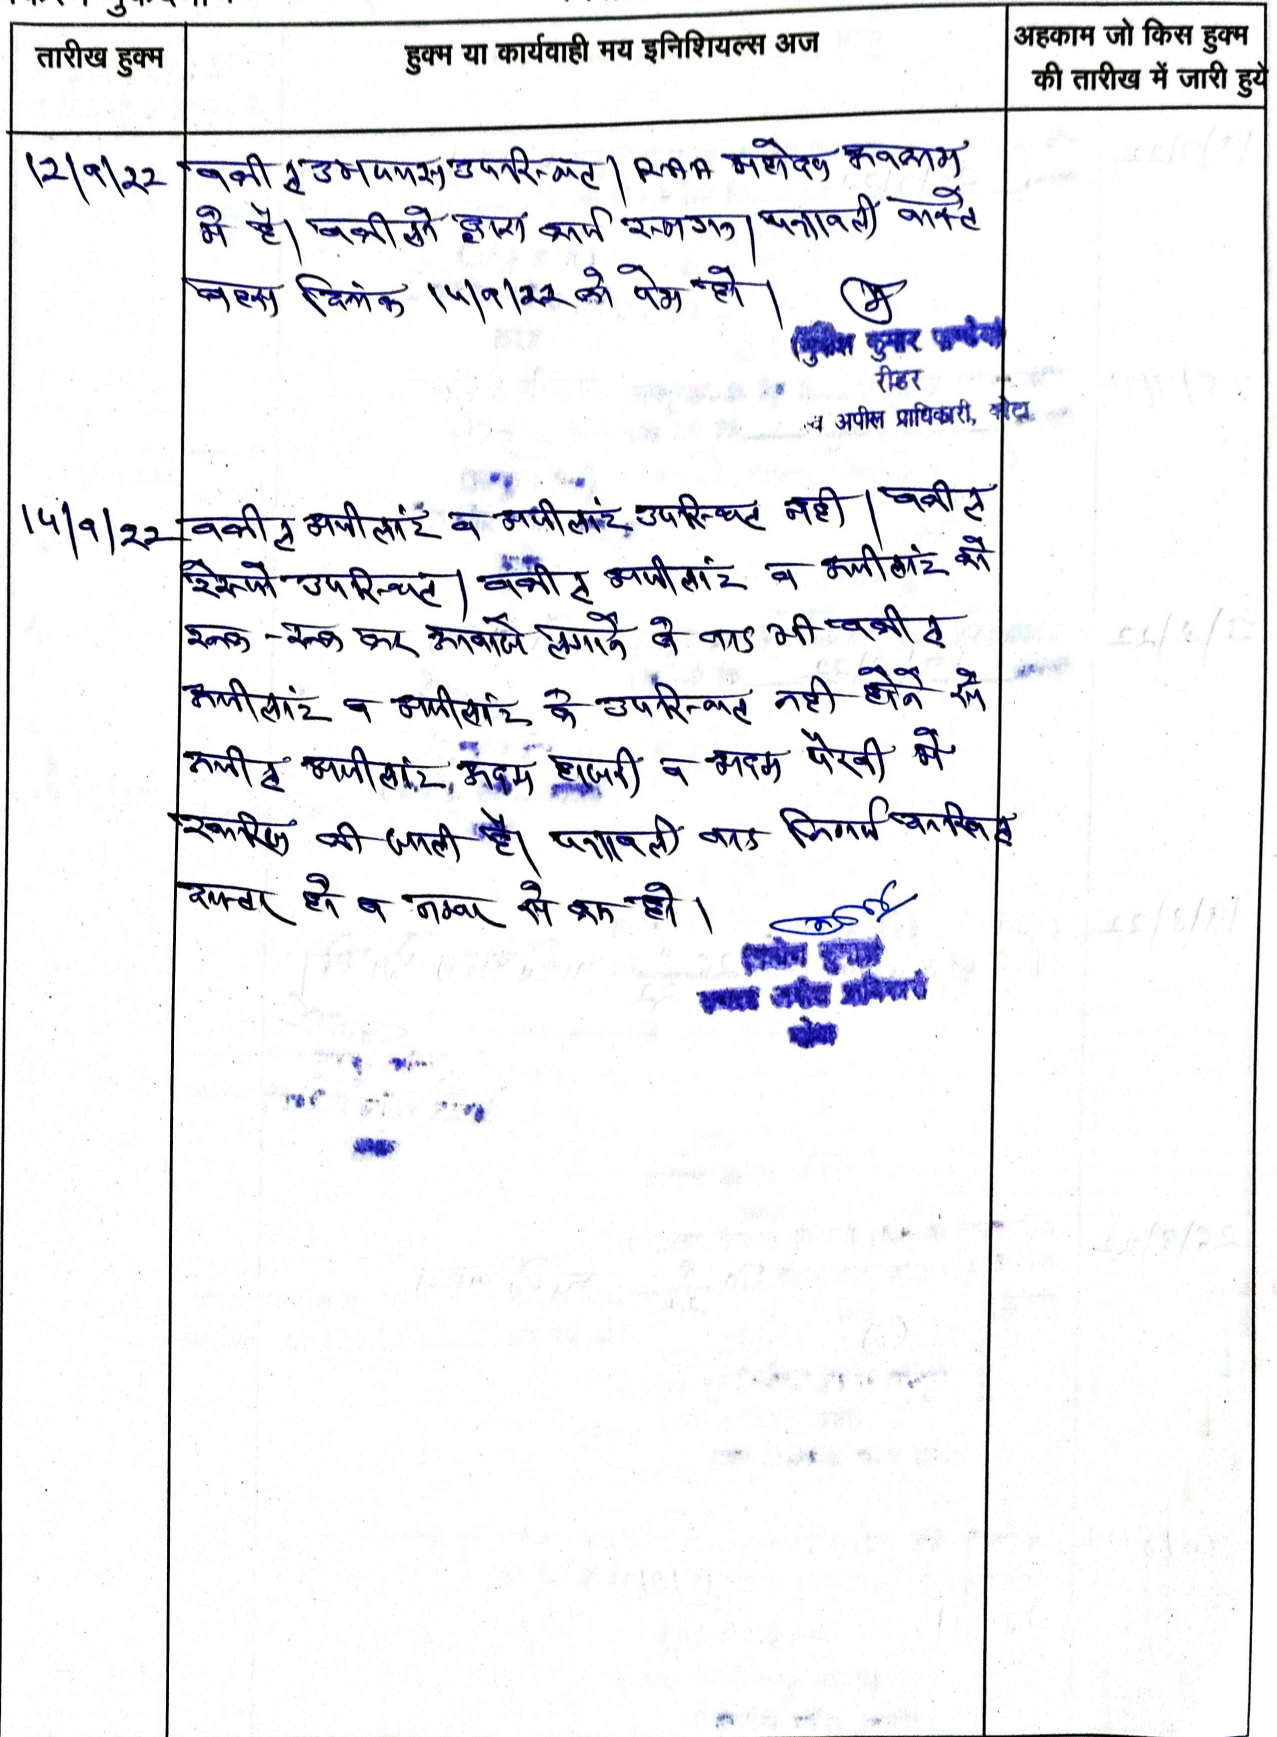 तारीख हुक्म
हुक्म या कार्यवाही मय इनिशियल्स अज
अहकाम जो किस हुक्म
की तारीख में जारी हुये
12/9/22 वकील उभयपक्ष उपस्थित। RAA महोदय अवकाश
में है। वकीलों द्वारा कार्य स्थगन। पत्रावली वास्ते
बहस दिनांक 14/9/22 को पेश हो।
कुमार
रीडर
अपील प्राधिकारी, कोटा
14/9/22 वकील अपीलांट व अपीलांट उपस्थित नही। वकील
रेस्पो उपस्थित। वकील अपीलांट व अपीलांट को
रूक-रूक कर आवाजे लगाने के बाद भी वकील
अपीलांट व अपीलांट के उपस्थित नही होने से
अपील अपीलांट अदम हाजरी व अदम पैरवी में
खारिज की जाती है। पत्रावली बाद निर्णय दाखिल
दफ्तर हो व नम्बर से कम हो।
अपील प्राधिकारी
कोटा